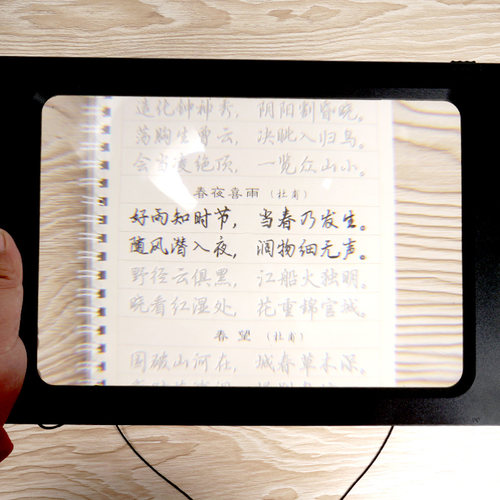 造化钟神秀，阴阳割昏晓。
荡胸生曾云，决眦入归鸟。
会当凌绝顶，一览众山小。
春夜喜雨（杜甫）
好雨知时节，当春乃发生。
随风潜入夜，润物细无声。
野径云俱黑，江船火独明。
晓看红湿处，花重锦官城。
春望（杜甫）
国破山河在，城春草木深。